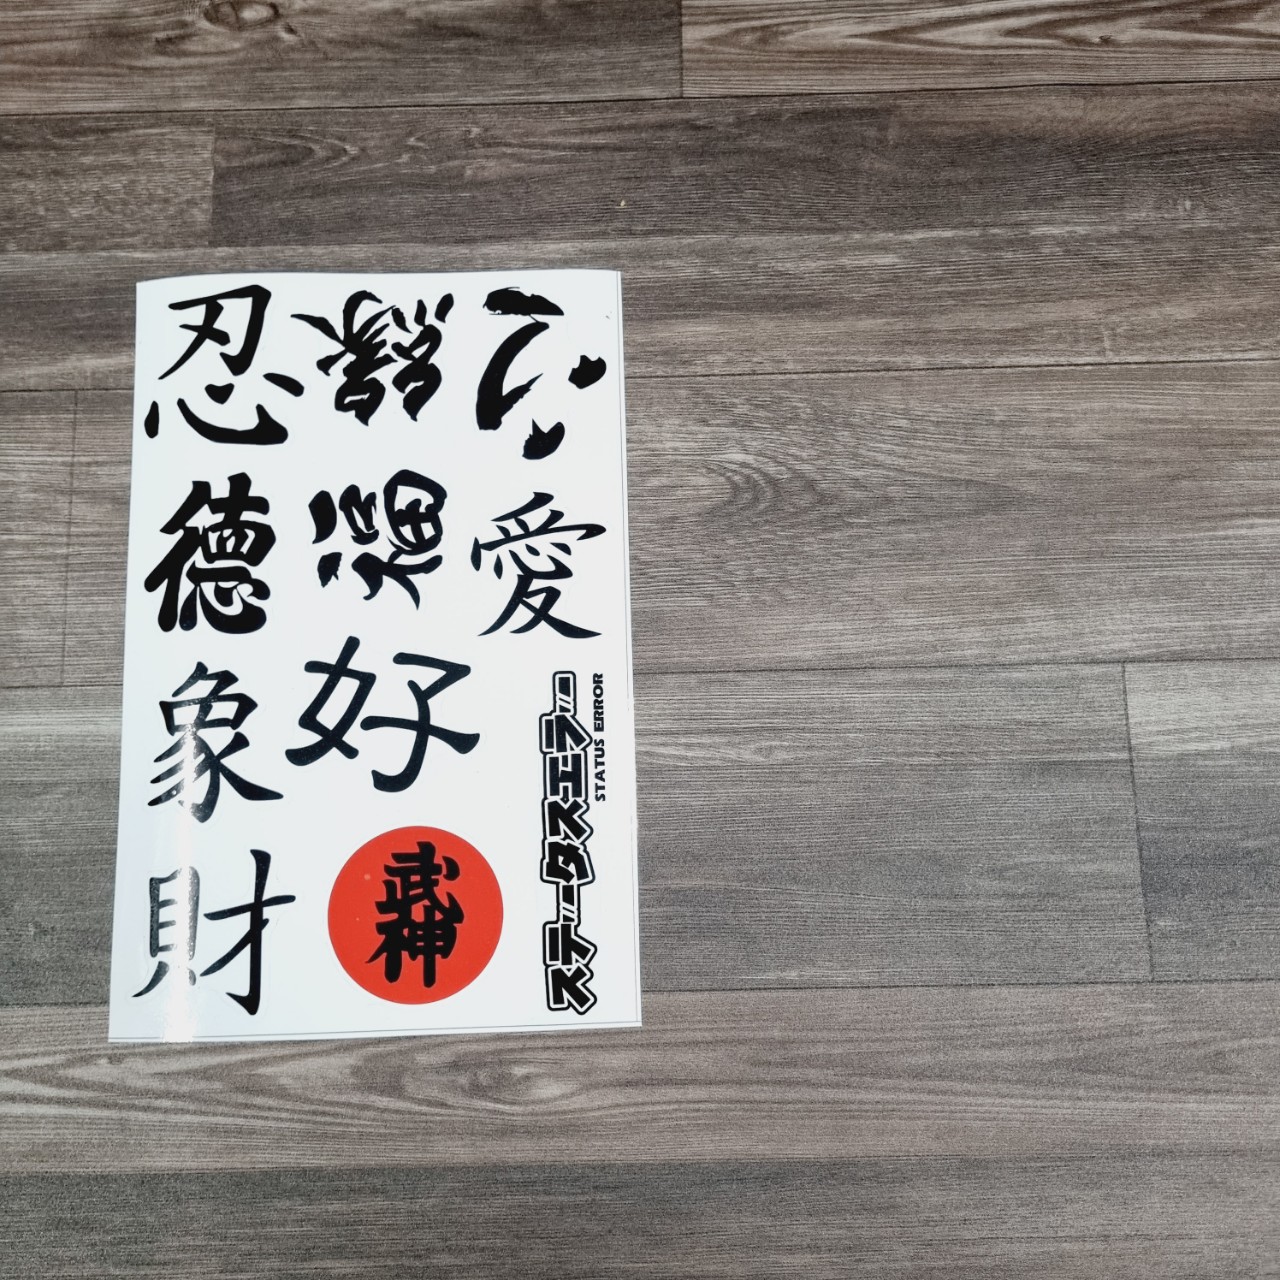 忍
德
象
財
緣
福
好
武神
心
愛
ステータスエラー
STATUS ERROR